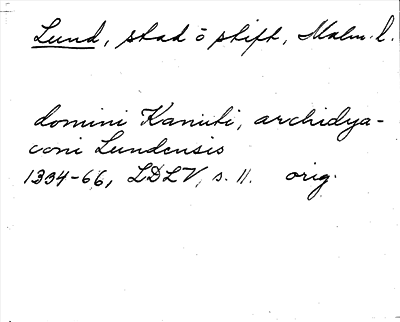 Lund, stad o stift, Malm. l.
domini Kanuti, archidya-
coni Lundensis
1334-66, LDLV, s. 11. orig.